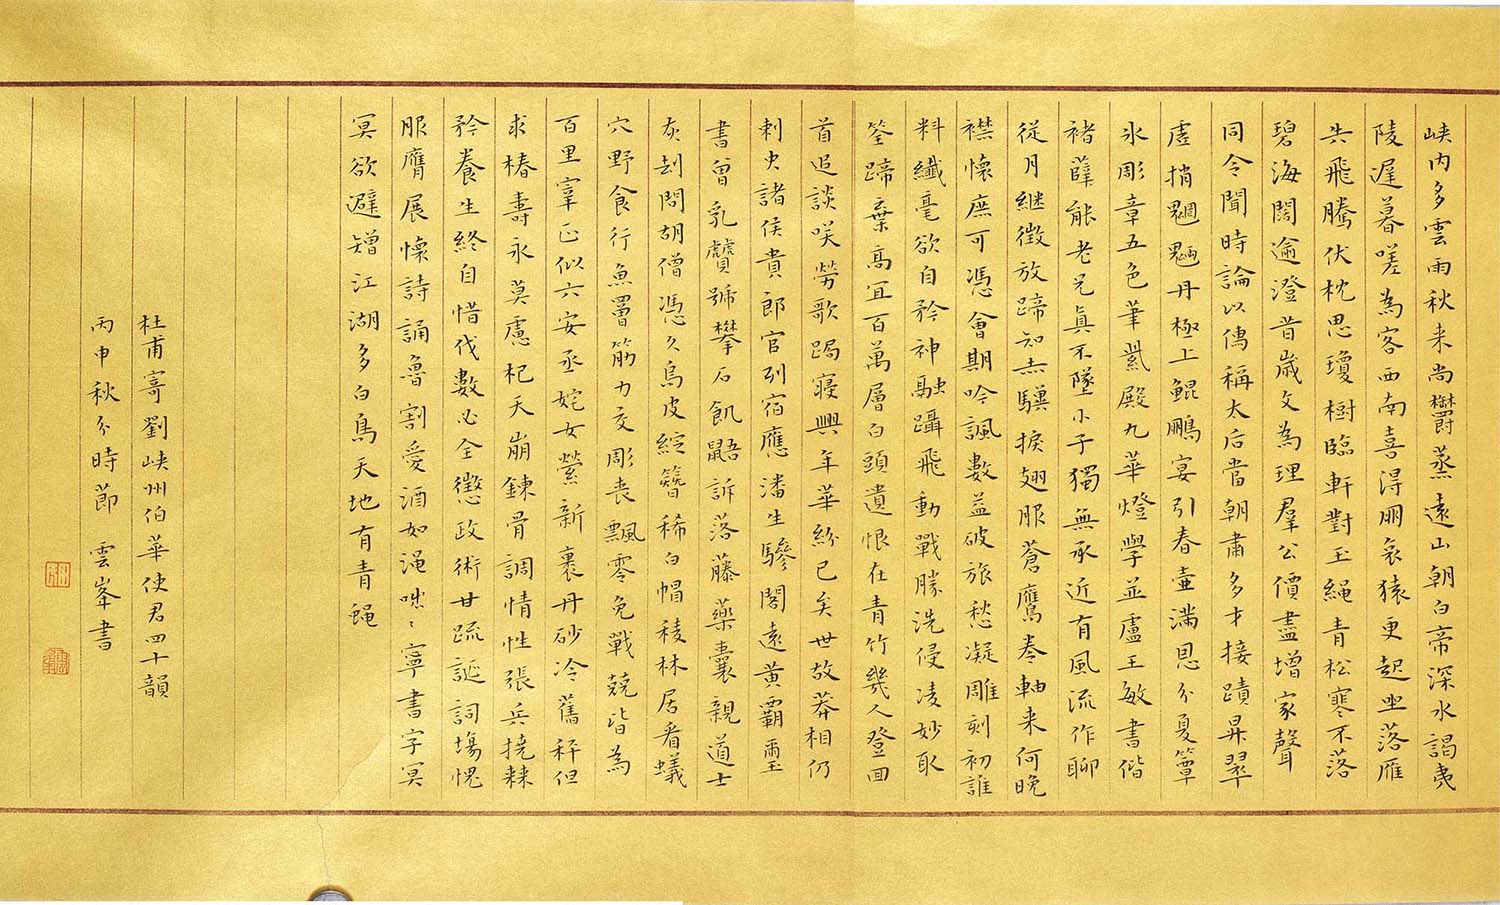 峽內多雲雨秋来尚鬱蒸遠山朝白帝深水謁夷
陵遲暮嗟為客西南喜得朋哀猿更起坐落雁
失飛騰伏枕思瓊樹臨軒對玉繩青松寒不落
碧海闊逾澄昔歲文為理羣公價盡增家聲
同令聞時論以儒稱太后當朝肅多才接蹟昇翠
虛捎魍魎丹極上鯤鵬宴引春壺滿恩分夏簟
氷彫章五色筆紫殿九華燈學並盧王敏書偕
褚薛能老兄真不墜小子獨無承近有風流作聊
從月繼徵放蹄知赤驥捩翅服蒼鷹卷軸来何晚
襟懷庶可憑會期吟諷數益破旅愁凝雕刻初誰
料纖毫欲自矜神融躡飛動戰勝洗侵凌妙取
筌蹄棄高宜百萬層白頭遺恨在青竹幾人登回
首追談咲勞歌跼寢興年華紛已矣世故莽相仍
刺史諸侯貴郎官列宿應潘生驂閣遠黃霸璽
書曾乳贙號攀石飢鼯訴落藤藥囊親道士
灰劫問胡僧憑久烏皮綻簪稀白帽稜林居看蟻
穴野食行魚罾筋力交彫喪飄零免戰兢皆為
百里宰正似六安丞姹女縈新裹丹砂冷舊秤但
求椿壽永莫慮杞天崩鍊骨調情性張兵撓棘
矜養生終自惜伐數必全懲政術甘疏誕詞場愧
服膺展懷詩誦魯割愛酒如澠咄〻寧書字冥
冥欲避矰江湖多白鳥天地有青蝇
杜甫寄劉峽州伯華使君四十韻
丙申秋分時節 雲峯書